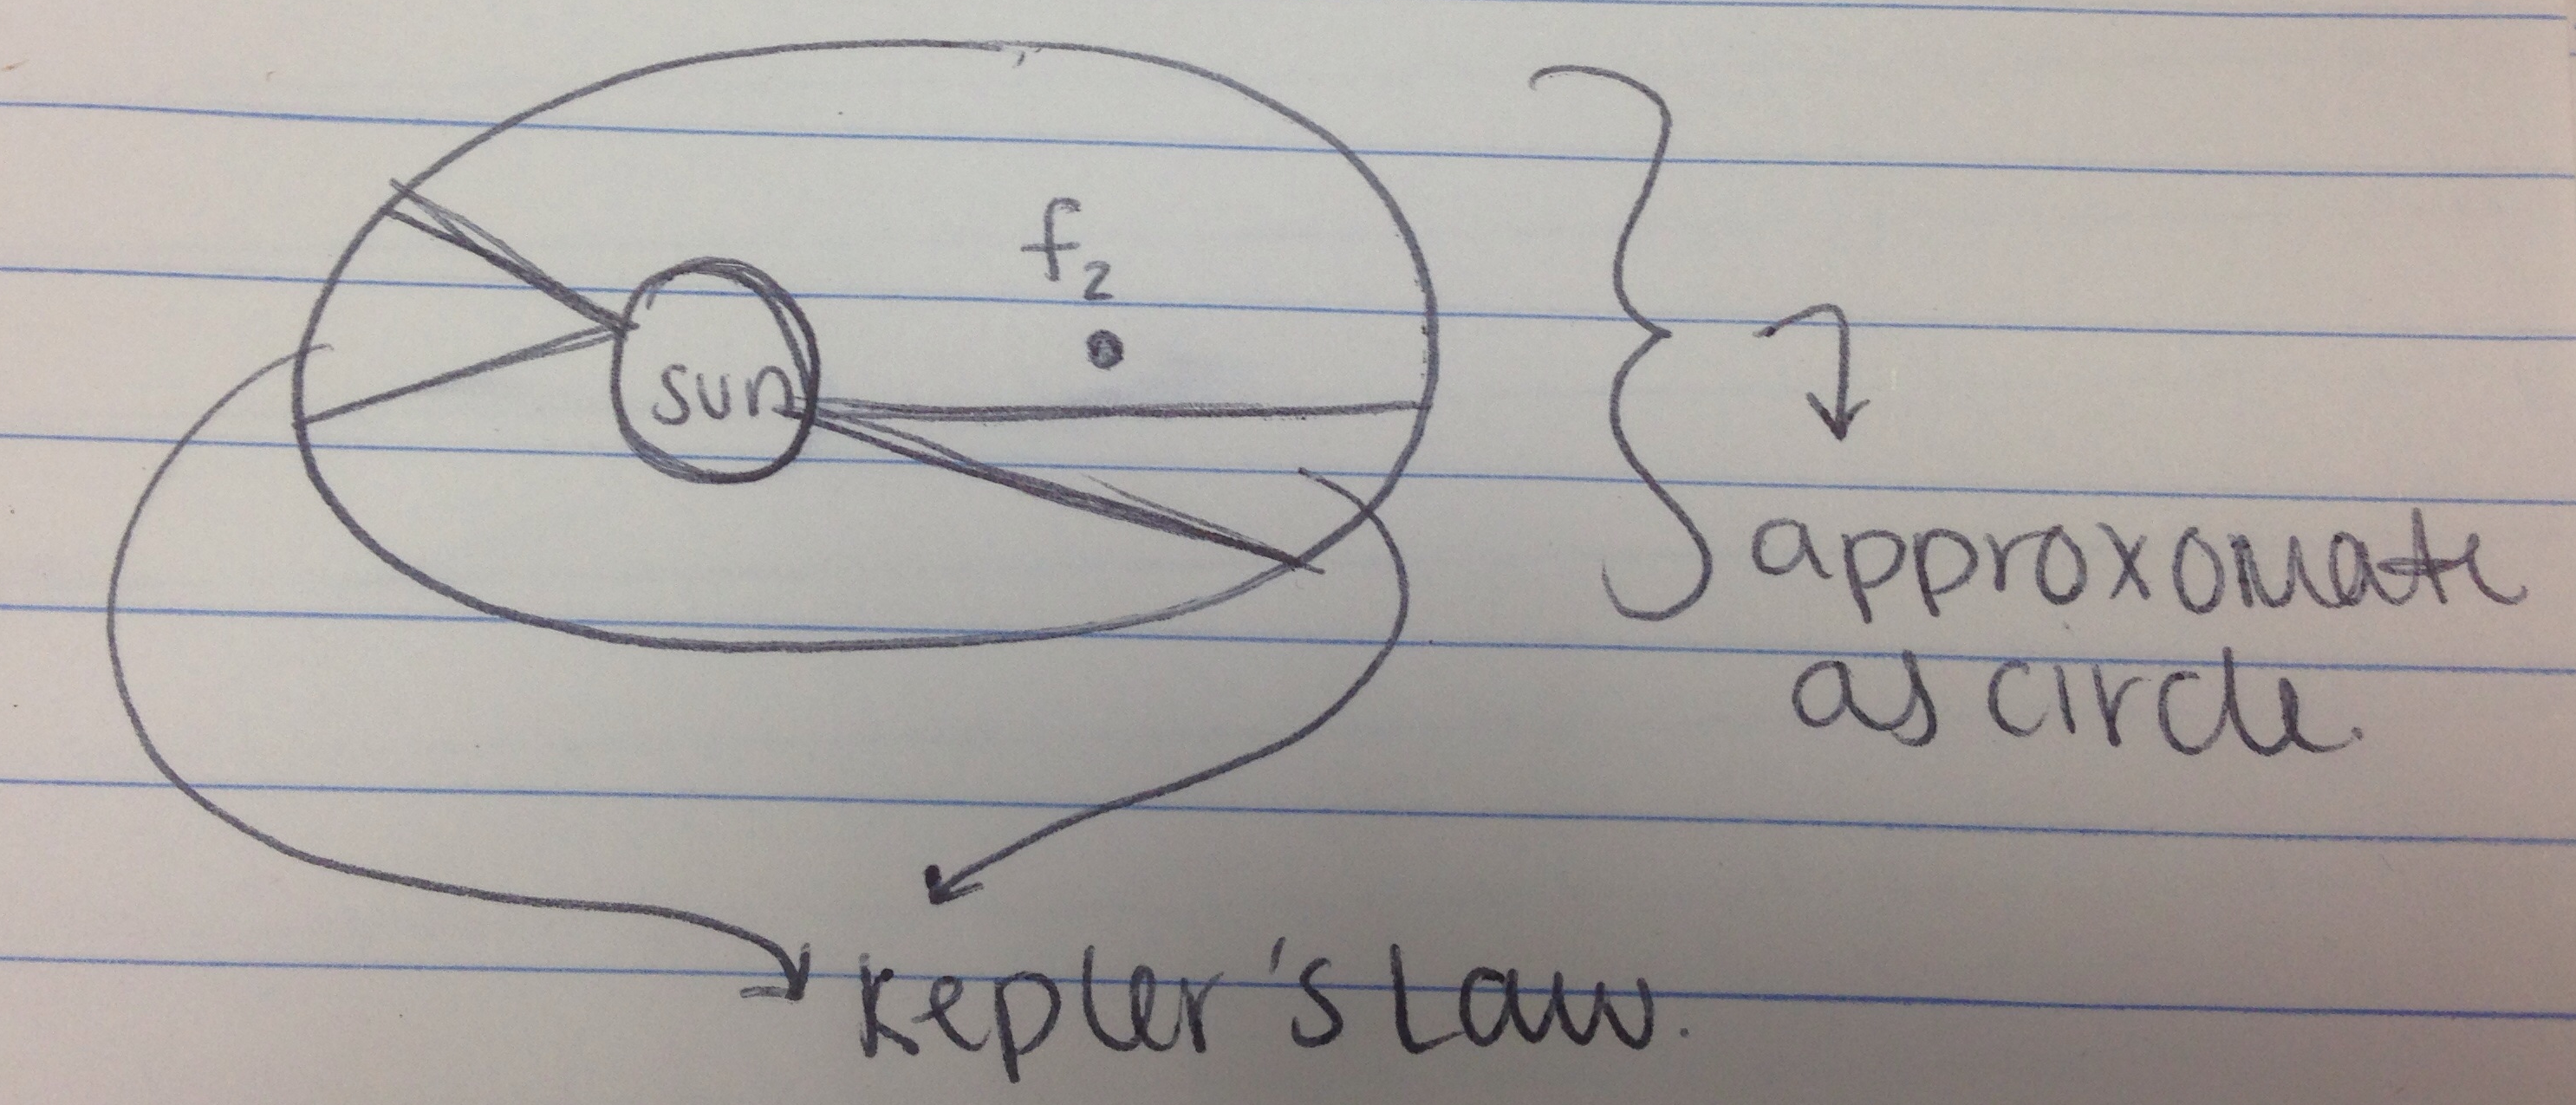 f2
sun
approxomate
as circle.
Kepler's Law.